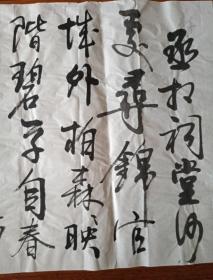 丞相祠堂何
處尋錦官
城外柏森映
階碧草自春